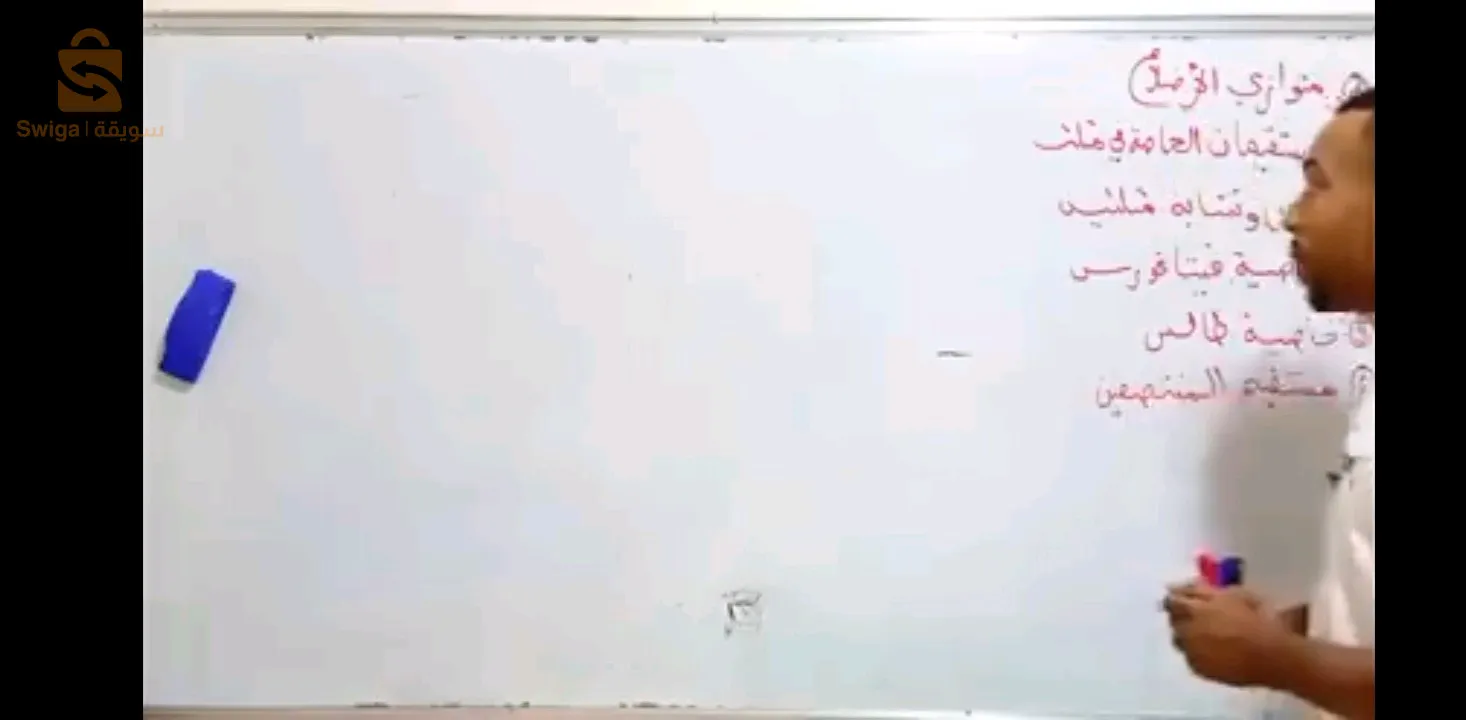 Swiga | سويقة
متوازي الأضلاع
المستقيمات الخاصة في مثلث
وتشابه مثلثين
خاصية فيتاغورس
خاصية طالس
مستقيم المنتصفين